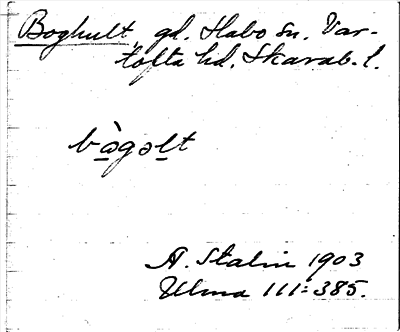 Boghult, gd. Habo sn. Var-
tofta hd. Skarab. l.
bògəlt
A. Stalin 1903
Ulma 111:385.